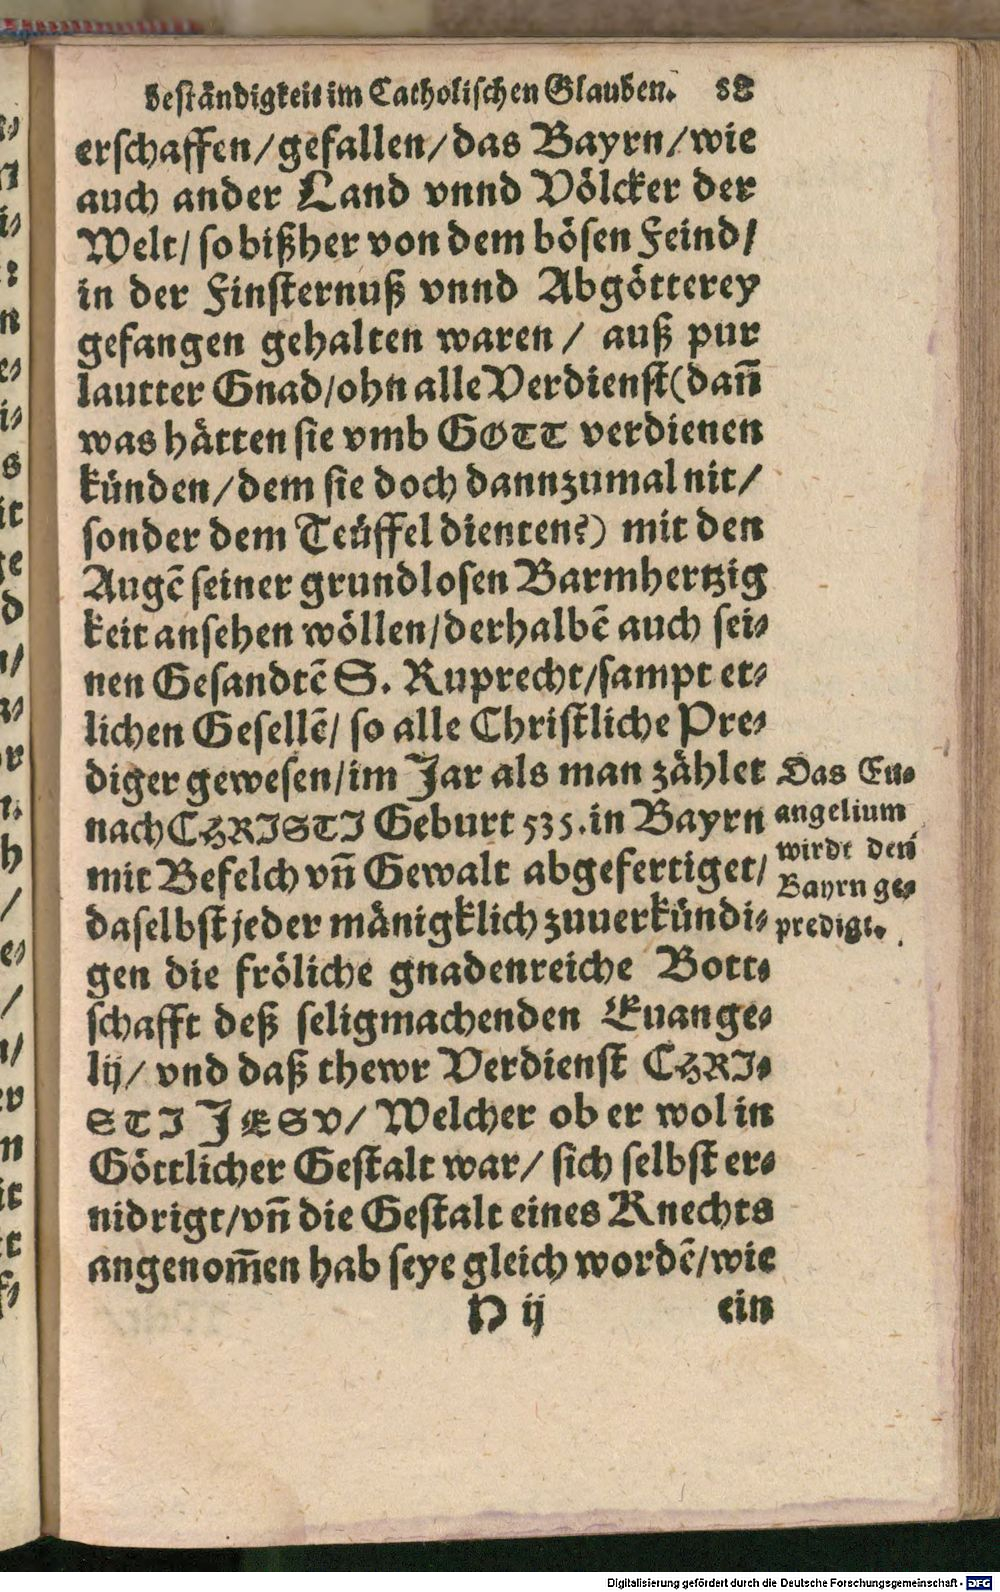 beständigkeit im Catholischen Glauben. 58
erschaffen/gefallen/das Bayrn/wie
auch ander Land vnnd Völcker der
Welt/ so bißher von dem bösen Feind/
in der Finsternuß vnnd Abgötterey
gefangen gehalten waren / auß pur
lautter Gnad/ohn alle Verdienst(dañ
was hätten sie vmb GOTT verdienen
künden/dem sie doch dannzumal nit/
sonder dem Teüffel dienten?) mit den
Augẽ seiner grundlosen Barmhertzig
keit ansehen wöllen/derhalbẽ auch sei-
nen Gesandtẽ S. Ruprecht/sampt et-
lichen Gesellẽ/ so alle Christliche Pre-
diger gewesen/im Jar als man zählet
nach CHRISTI Geburt 535.in Bayrn
mit Befelch vñ Gewalt abgefertiget/
daselbst jeder mänigklich zuuerkündi-
gen die fröliche gnadenreiche Bott-
schafft deß seligmachenden Euange-
lij/ vnd daß thewr Verdienst CHRI-
STI JESV/ Welcher ob er wol in
Göttlicher Gestalt war/ sich selbst er-
nidrigt/vñ die Gestalt eines Knechts
angenom̃en hab seye gleich wordẽ/wie
P ij ein
Das Eu-
angelium
wirdt den
Bayrn ge-
predigt.
Digitalisierung gefördert durch die Deutsche Forschungsgemeinschaft - DFG